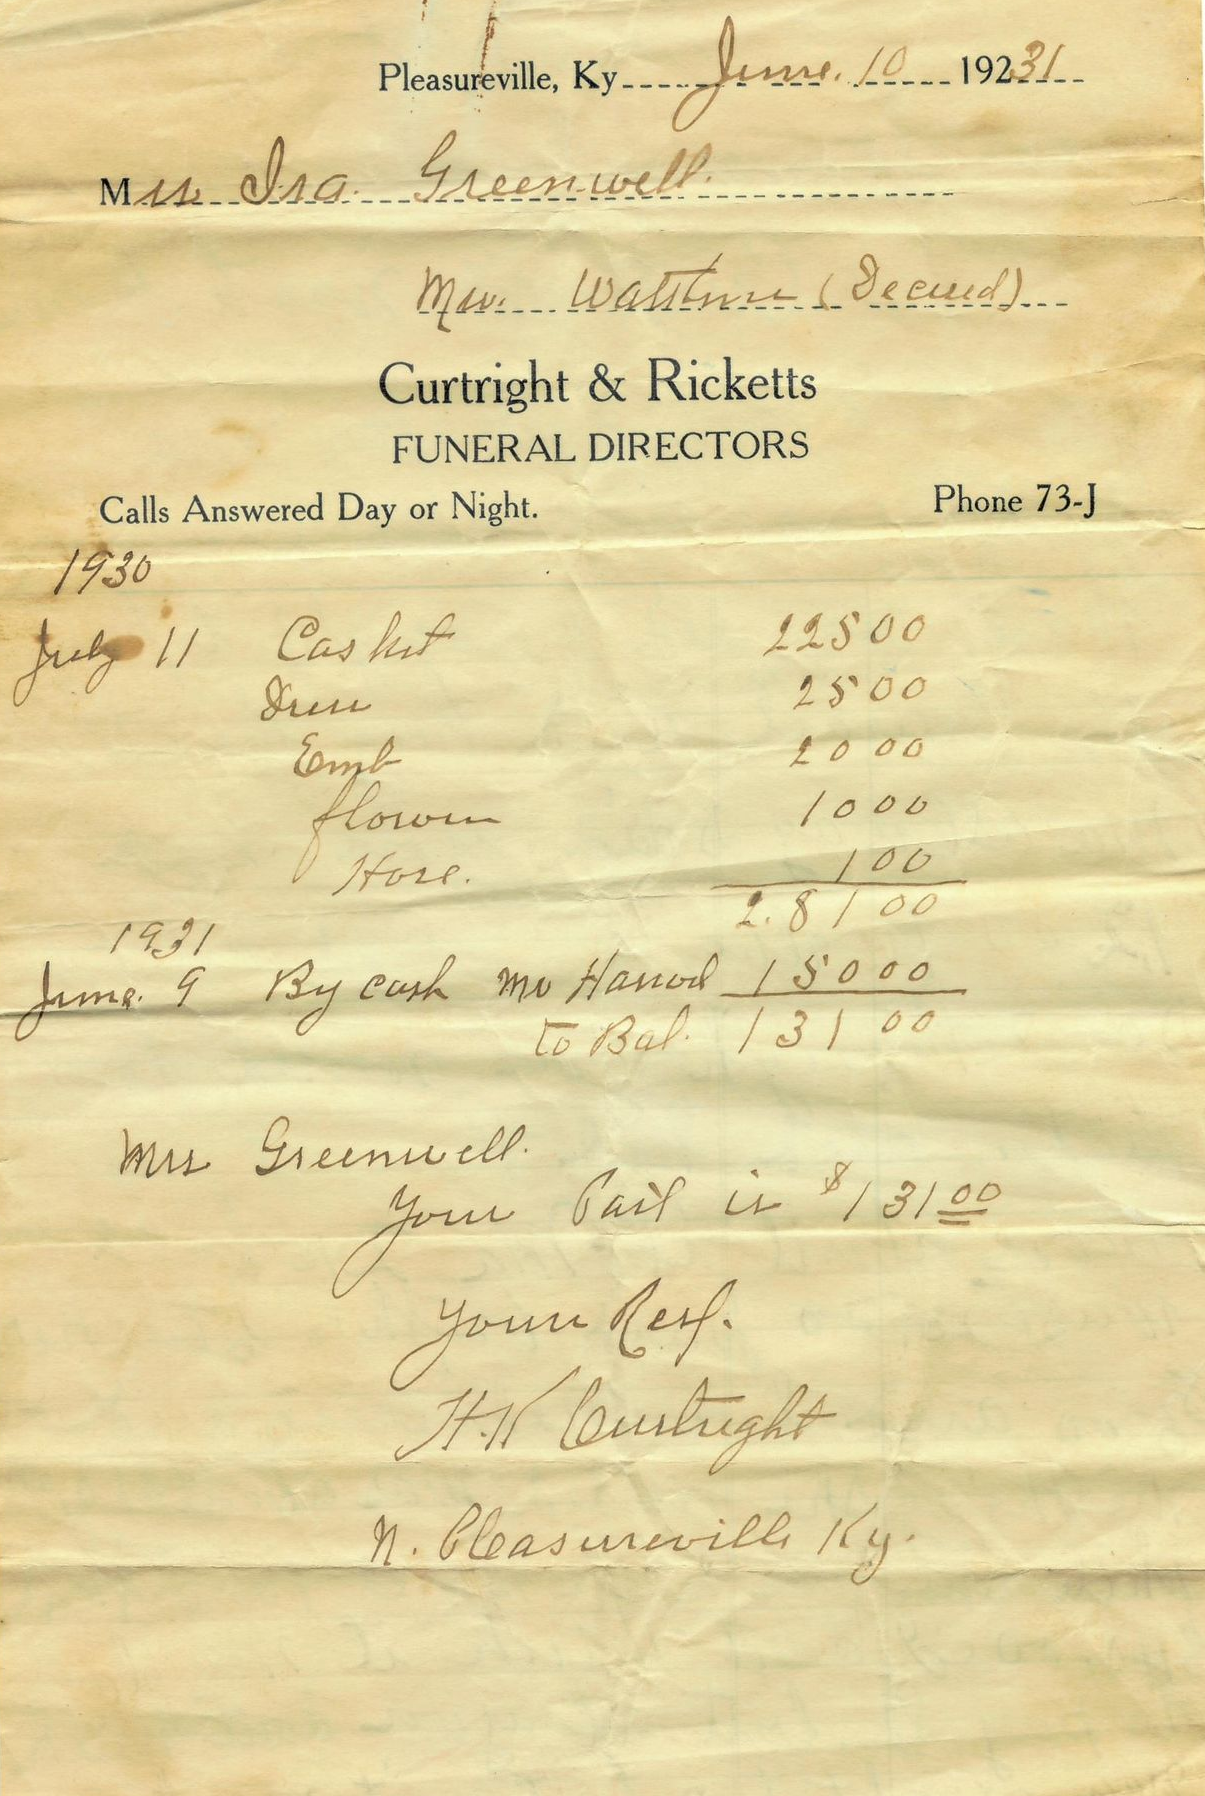 Pleasureville, Ky June. 10 19231
Mrs Ira. Greenwell.
Mrs. (Deceased)
Curtright & Ricketts
FUNERAL DIRECTORS
Calls Answered Day or Night. Phone 73-J
1930
July 11 Casket 225 00
Dress 25 00
Emb 20 00
flowers 10 00
Hose. 1 00
2.81 00
1931
June. 9 By cash Mr Harrod 150 00
to Bal. 131 00
Mrs Greenwell.
Your Part is $131 00
Yours Resp.
H.K Curtright
N. Pleasureville Ky.